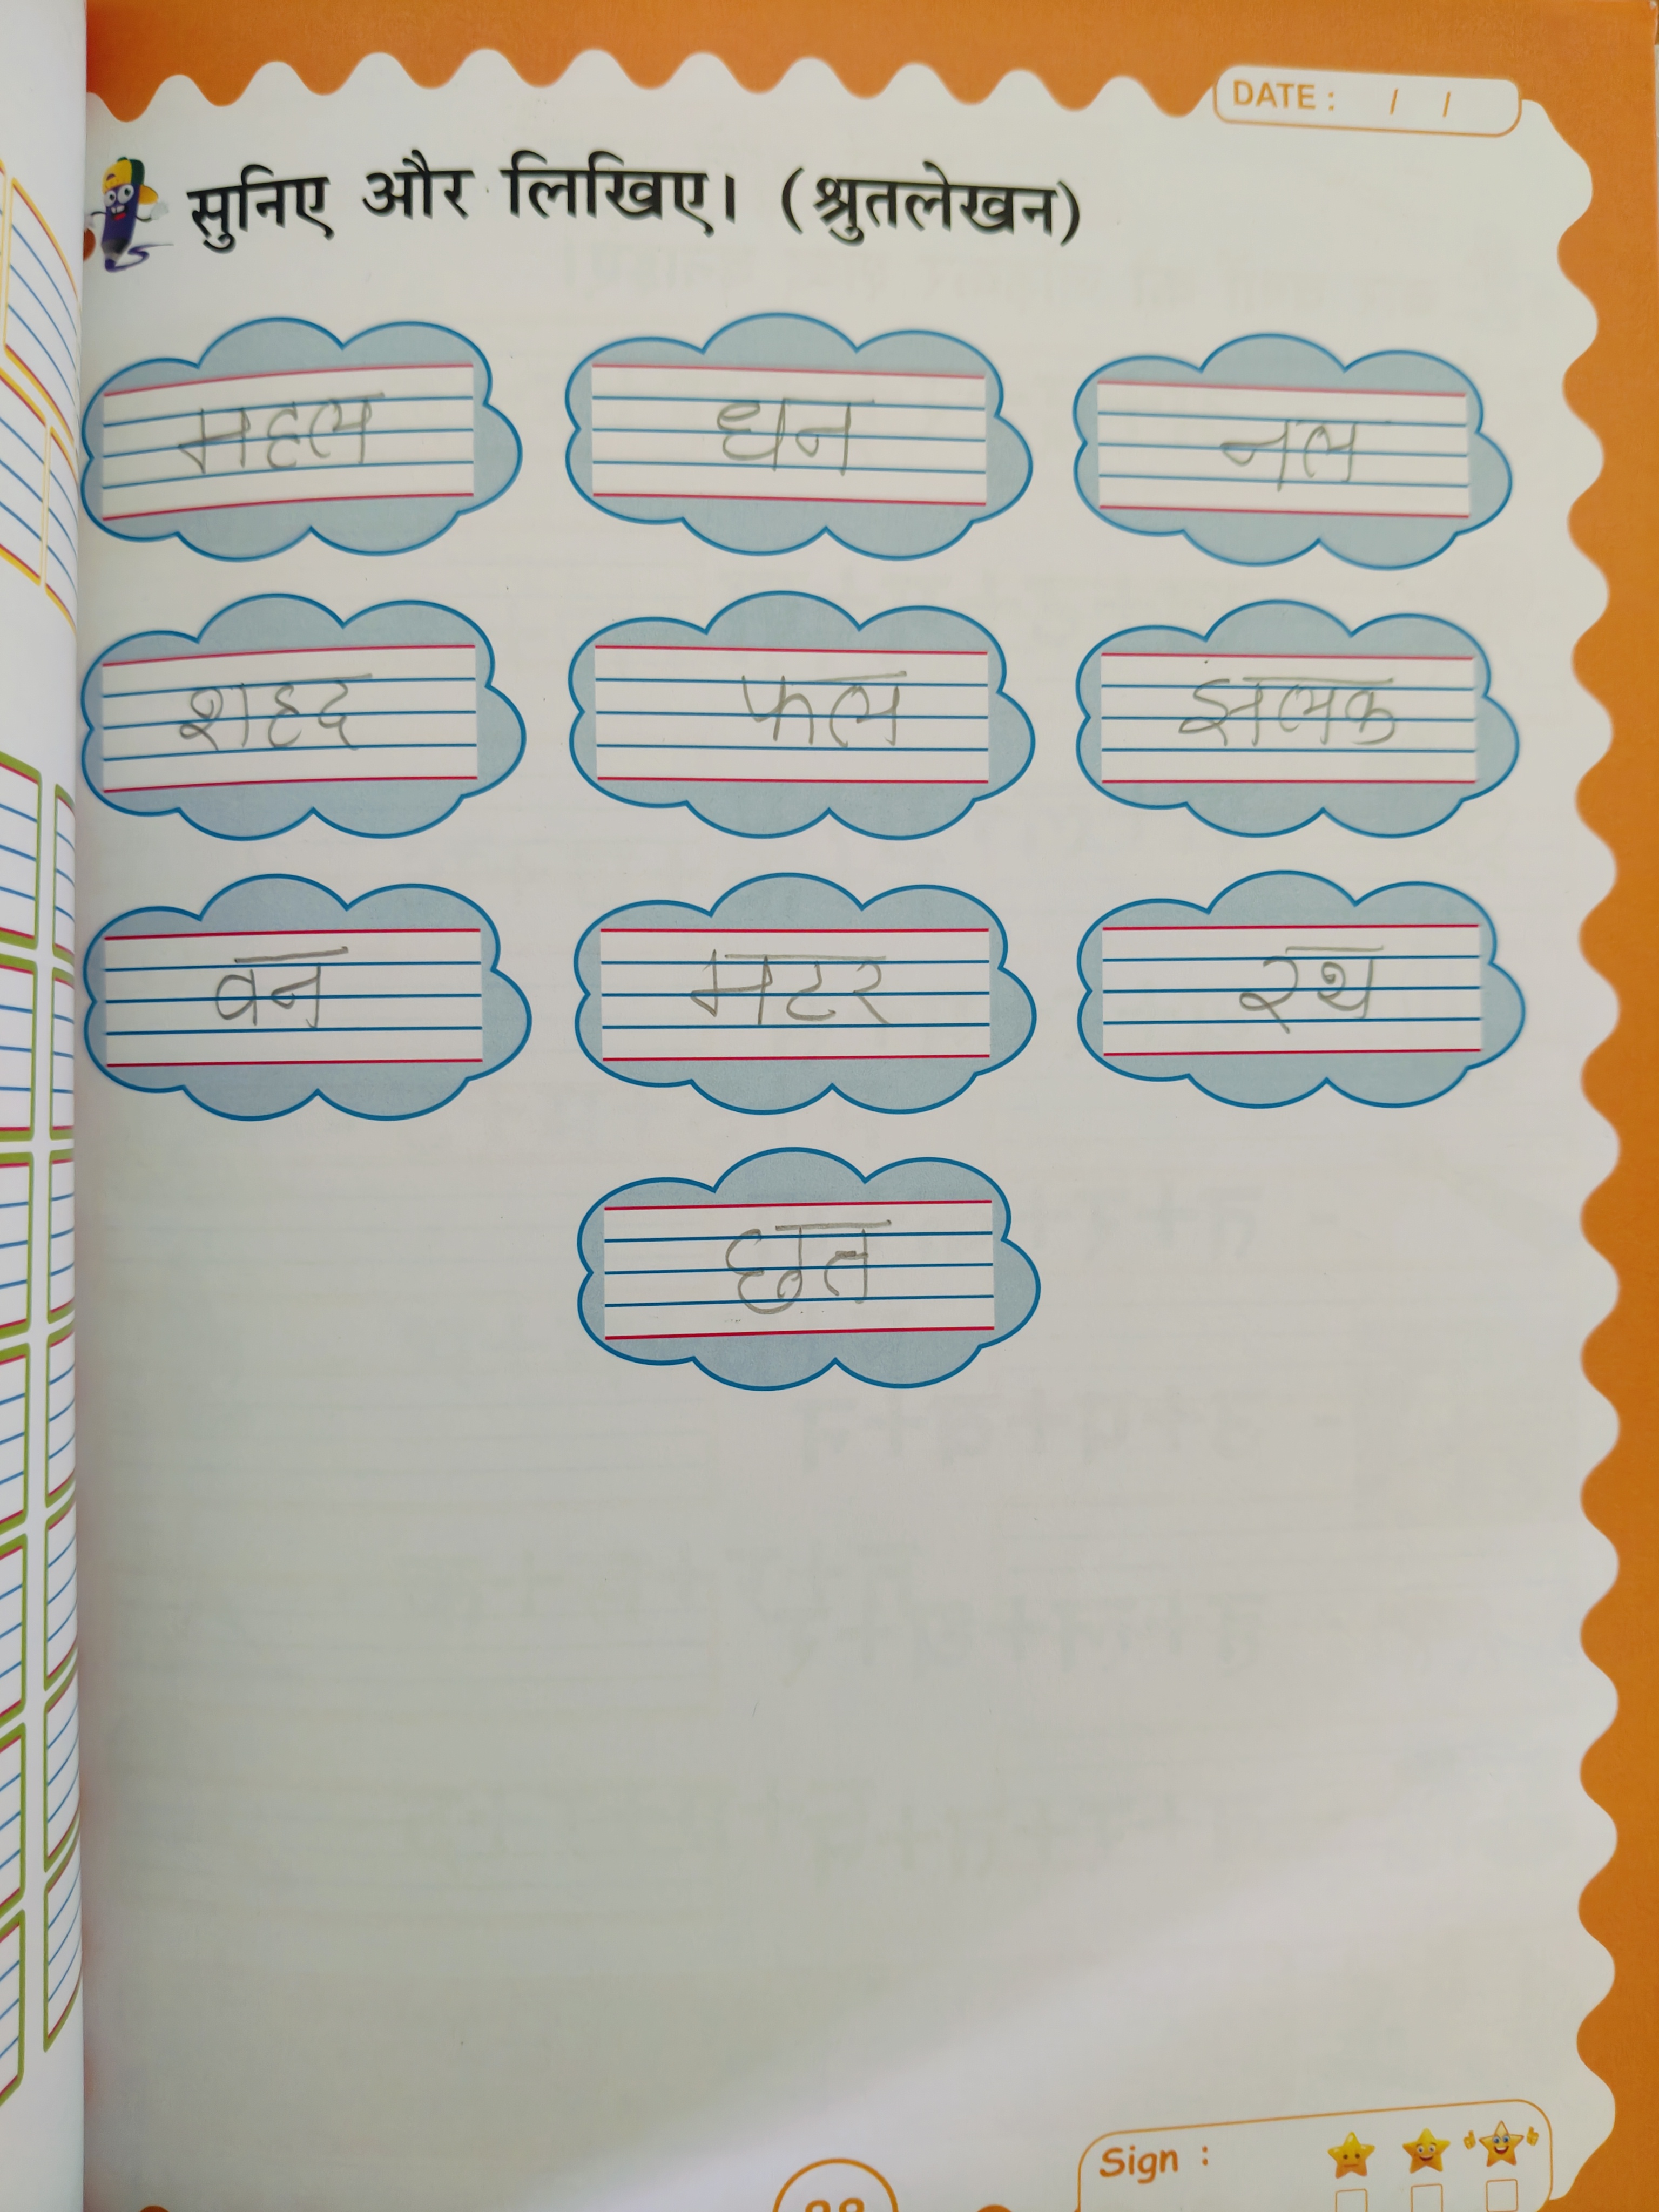 DATE : / /
सुनिए और लिखिए। (श्रुतलेखन)
महल धन नल
शहद फल झलक
वन मटर रथ
छत
Sign :